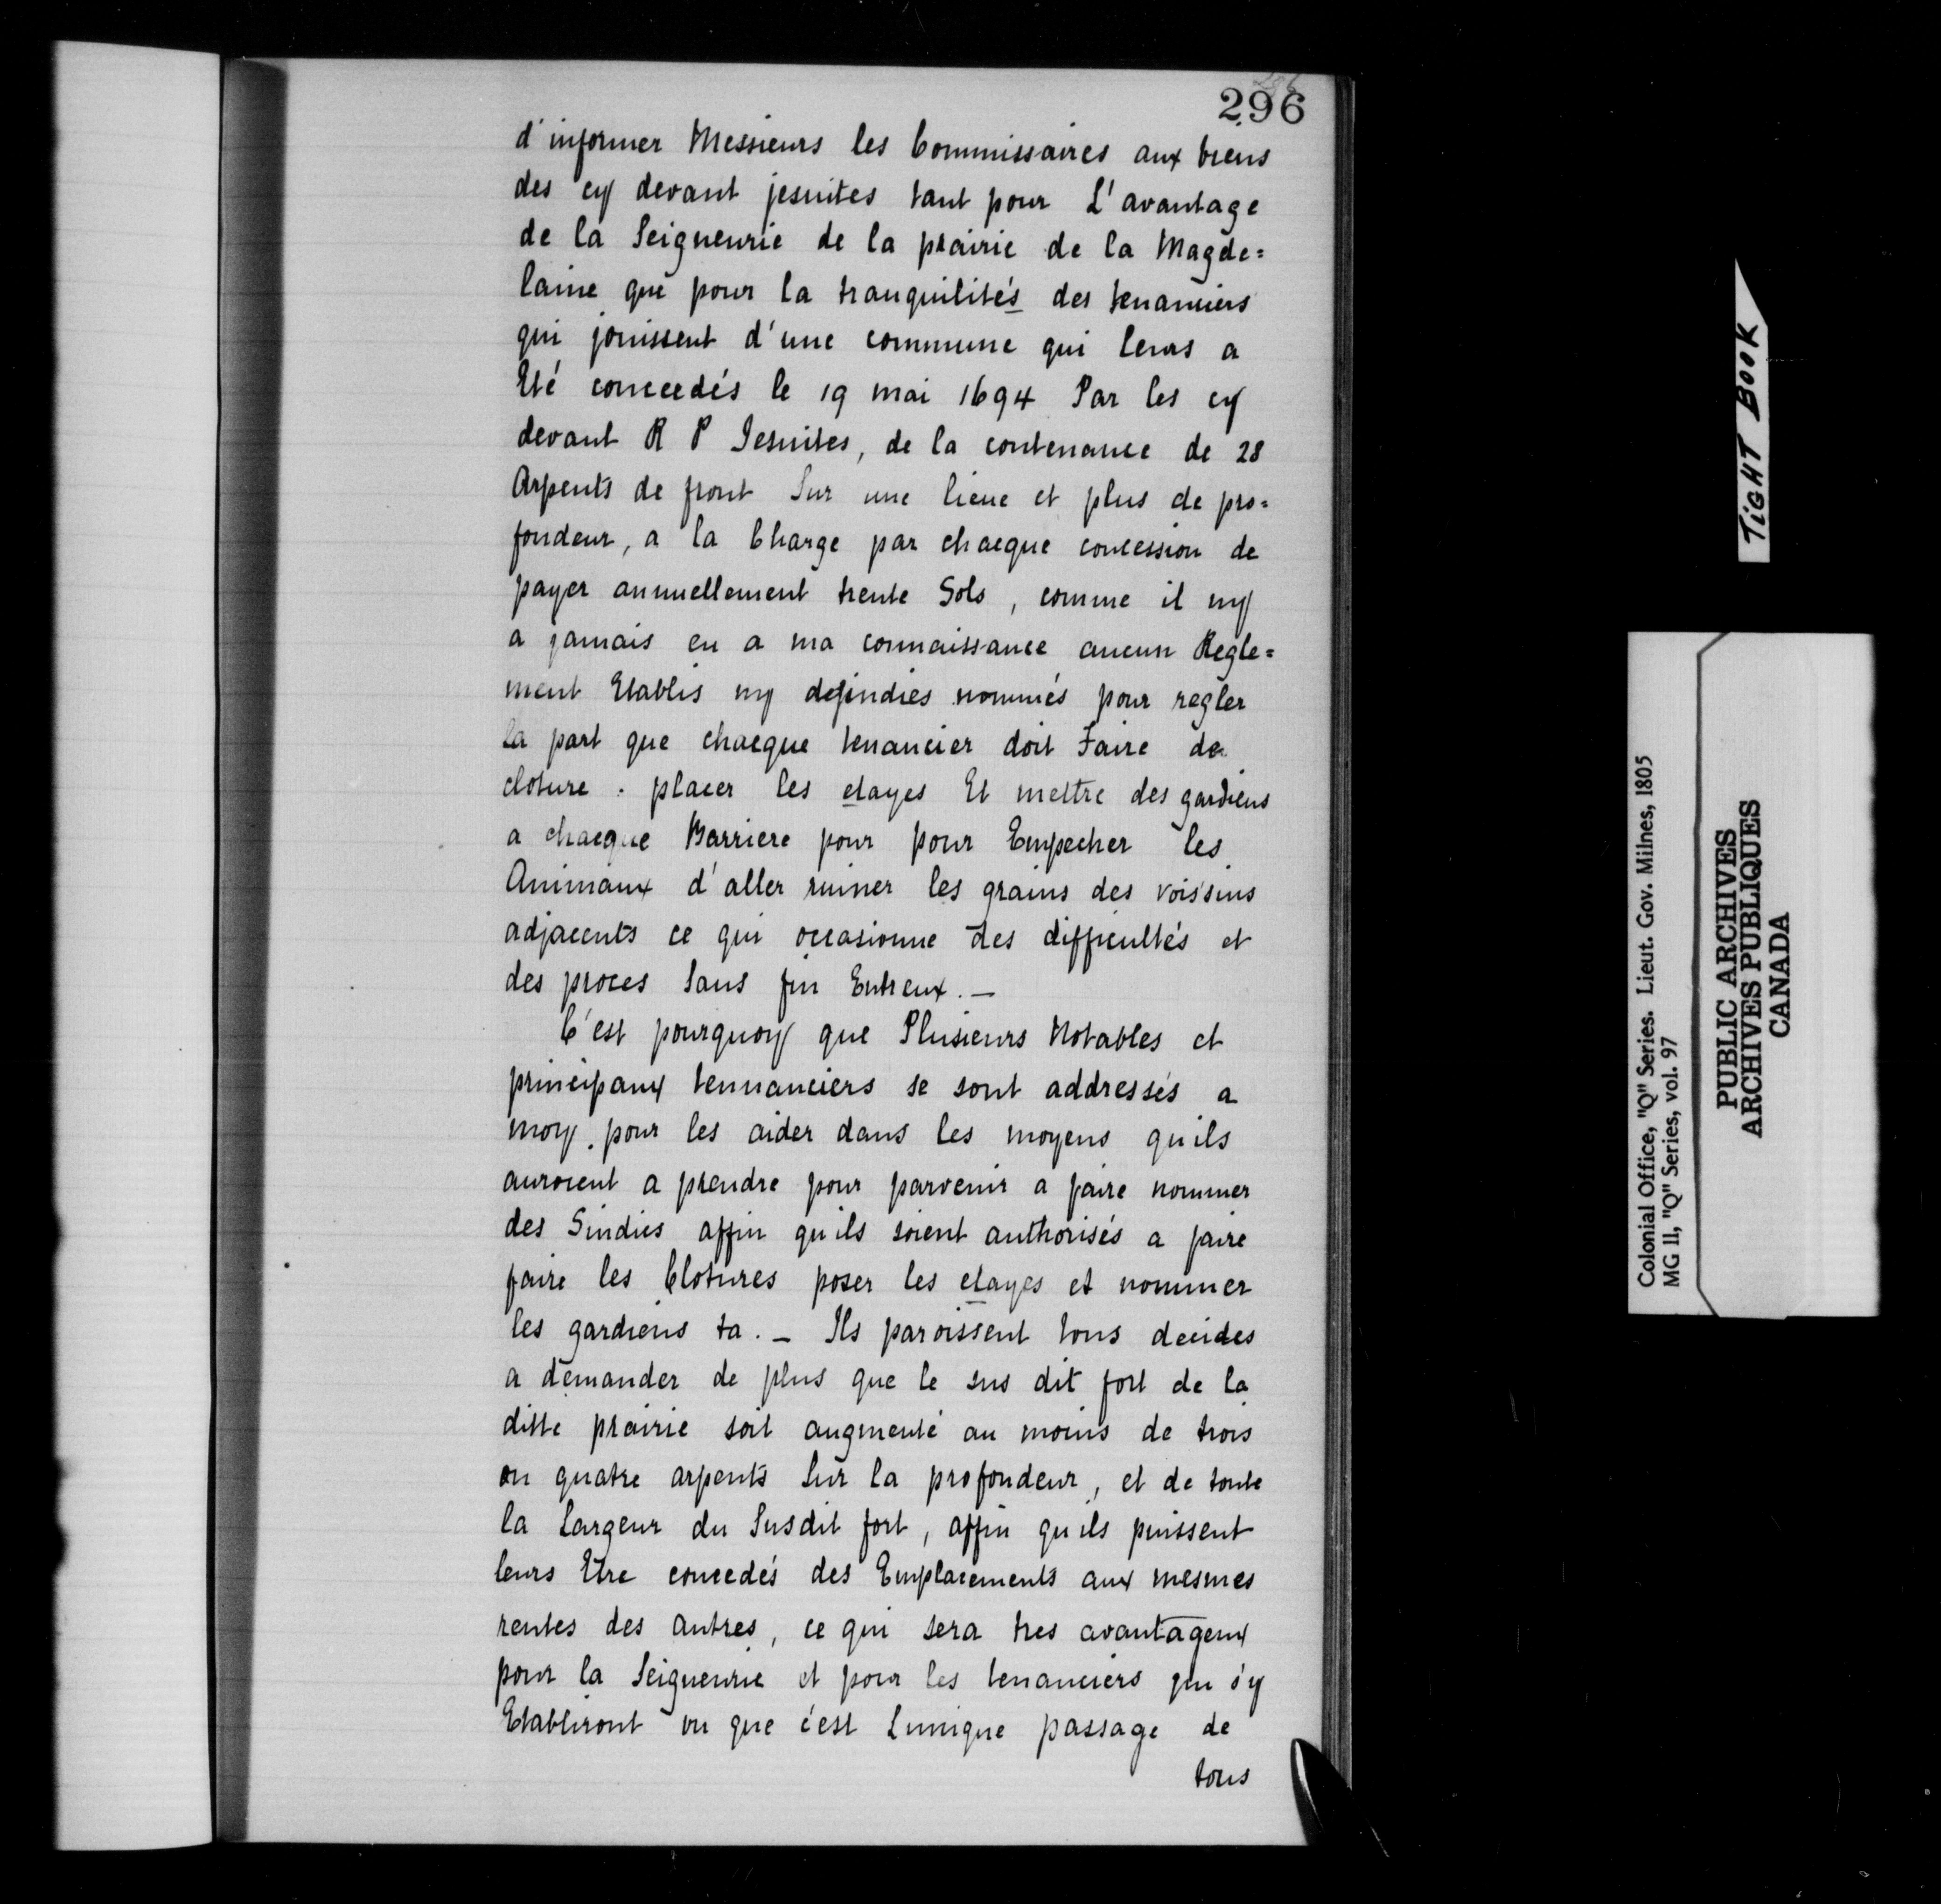 296
d'informer Messieurs les Commissaires aux biens
des cy devant jesuites tant pour L'avantage
de la Seigneurie de la prairie de la Magde=
laine que pour la tranquilités des tenanciers
qui jouissent d'une commune qui leurs a
Eté concedés le 19 mai 1694 Par les cy
devant R P Jesuites, de la contenance de 28
Arpents de front Sur une lieue et plus de pro=
fondeur, a la Charge par chacque concession de
payer annuellement trente Sols, comme il ny
a jamais eu a ma connaissance aucun Regle=
ment Etablis ny nommés pour regler
la part que chacque tenancier doit Faire de
cloture. placer les etayes Et mettre des gardiens
a chacque Barriere pour pour Empecher les
Animaux d'aller ruiner les grains des voissins
adjacents ce qui occasionne des difficultés et
des proces Sans fin Entreux. —
C'est pourquoy que Plusieurs Notables et
principaux tennanciers se sont addressés a
moy. pour les aider dans les moyens quils
auroient a prendre pour parvenir a faire nommer
des Sindics affin qu'ils soient authorisés a faire
faire les Clotures poser les etayes et nommer
les gardiens ta. — Ils paroissent tous decides
a demander de plus que le sus dit fort de la
ditte prairie soit augmenté au moins de trois
ou quatre arpents Sur la profondeur, et de toute
la Largeur du Susdit fort, affin qu'ils puissent
leurs Etre concedés des Emplacements aux mesmes
rentes des autres, ce qui sera tres avantageux
pour la Seigneurie et pour les tenanciers qui s'y
Etabliront vu que c'est Lunique passage de
tous
TIGHT BOOK
Colonial Office, "Q" Series. Lieut. Gov. Milnes, 1805
MG 11, "Q" Series, vol. 97
PUBLIC ARCHIVES
ARCHIVES PUBLIQUES
CANADA